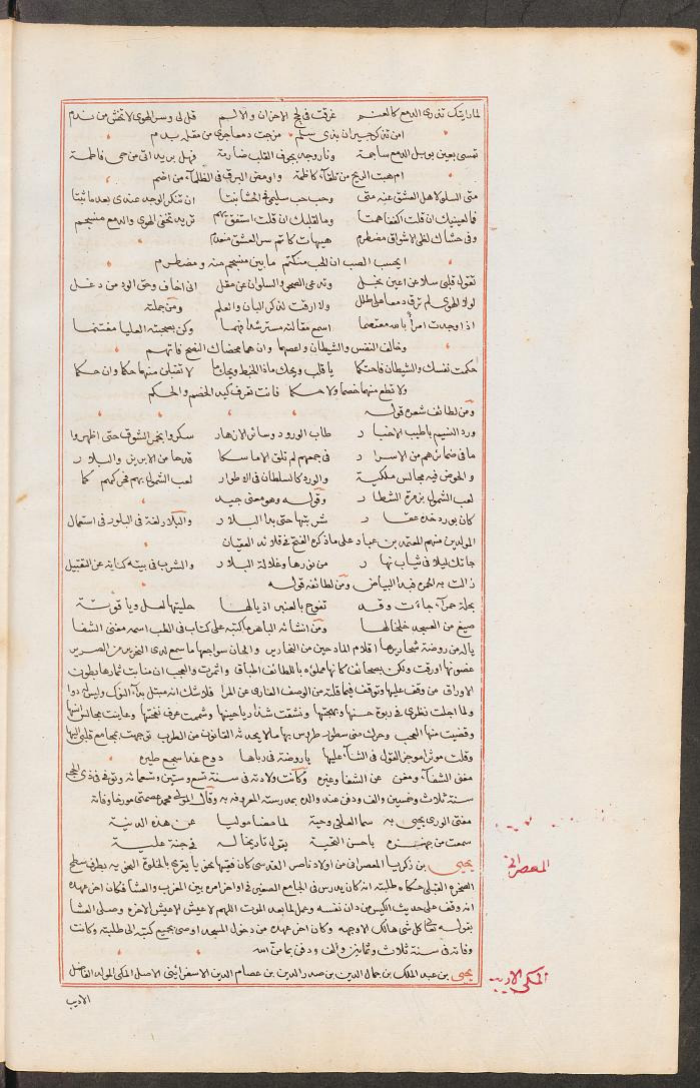 لما رايتك تذرى الدمع كالعنم غرقت فى لج الاحزان والالم قل لى وسر الهوى لا تخش من ندم
امن تذكر جيران بذى سلم مزجت دمعا جرى من مقلة بدم
تمسى بعين بوبل الدمع ساجمة ونار وجد بجوف القلب ضارمة فهل بريد اتى من حى فاطمة
ام هبت الريح من تلقاء كاظمة واومض البرق فى الظلماء من اضم
متى السلو لاهل العشق عنه متى وحب حب سليمى فى الحشا نبتا ان تنكر الوجد عندى بعد ما ثبتا
فما لعينيك ان قلت اكففا همتا وما لقلبك ان قلت استفق يهم تريد تخفى الهوى والدمع منسجم
وفى حشاك لظى الاشواق مضطرم هيهات كاتم سر العشق منعدم
ايحسب الصب ان الحب منكتم ما بين منسجم منه ومضطرم
تقول قلبى سلا عن اعين نجل وتدعى الصحو والسلوان عن مقل انى اخاف وحق الود من دغل
لولا الهوى لم ترق دمعا على طلل ولا ارقت لذكر البان والعلم ومن جملته
اذا وجدت امرأ بالله معتصما اسمع مقالته مسترشدا فهما وكن بصحبته العليا مغتنما
وخالف النفس والشيطان واعصهما وان هما محضاك النصح فاتهم
حكمت نفسك والشيطان فاحتكما يا قلب ويحك ماذا الخبط ويحك ما لا تقبلن منهما حكما وان حكما
ولا تطع منهما خصما ولا حكما فانت تعرف كيد الخصم والحكم
ومن لطائف شعره قوله
ورد النسيم باطيب الاخبار طاب الورود وسائر الازهار سكروا بخمر الشوق حتى اظهروا
ما فى ضمائرهم من الاسرار فى جمعهم لم تلق الا ماسكا قدحا من الابريز والبلار
والحوض فيه مجالس ملكية والورد كالسلطان فى الاطوار لعب الشمول بهم فخركهم كما
لعب الشمول بزمرة الشطار وقوله وهو معنى جيد
كان بورد خده عقار شربتها حتى بدا البلار والبلار لغة فى البلور فى استعمال
المولدين منهم المعتمد بن عباد على ما ذكره الفتح فى قلائد العقيان
جاءتك ليلا فى ثياب نهار من نورها وغلالة البلار والشرب فى بيته كناية عن التقبيل
زالت به الحمرة فبدا البياض ومن لطائفه قوله
بحلة حمراء جاءت وقد تفوح بالعنبر اذيالها حليتها لعل وياقوتة
صيغ من العسجد خلخالها ومن انشائه الباهر ما كتبه على كتاب فى الطب اسمه مغنى الشفا
ياله من روضة شجاريرها اقلام المادحين من النحارير والحان سواجعها ما سمع لدى التحرير من الصرير
غصونها اورقت ولكن بصحائف كانها مملوءه باللطائف اطباق واثمرت والعجب ان منابت ثمارها بطون
الاوراق عن وقف عليها وتوقف فيما قلته من الوصف العارى عن المرا فلا شك انه مبتلى بداء النوك وليس له دوا
ولما اجلت نظرى فى ربوة حسنها وبهجتها ونشقت شذا رياحينها وشممت عرف نفحتها وعاينت مجالس انسها
وقضيت منها العجب وحرك منى سطور طروس بها ما لا يحدثه القانون من الطرب توجهت بمجامع قلبى اليها
وقلت موثرا موجز القول فى الثناء عليها يا روضة فى رباها دوح غدا سجع طيره
مغنى الشفاء ومغن عن الشفا وغيره وكانت ولادته فى سنة تسع وستين وتسعمائه وتوفى فى ذى الحجه
سنة ثلاث وخمسين والف ودفن عند والده بمدرسته المعروفه به وقال المولى محمد عصمتى مورخا وفاته
مفتى الورى يحيى به سما العلى وحية لما مضى موليا عن هذه الدنية
سمعت من جهنره باحسن التحية يقول تاريخا له فى جنة علية
يحيى بن زكريا المعصرانى من اولاد ناصر القدسى كان فقيها نحويا يقرى بالخلوة النحويه بطرف سطح
الصخره القبلى حكاه طلبته انه كان يدرس فى الجامع الصغير فى اواخر امره بين المغرب والعشا فكان اخر عهده
انه وقف على حديث الكيس من دان نفسه وعمل لما بعد الموت اللهم لا عيش الا عيش الاخره وصلى العشا
بقوله تعالى كل شى هالك الا وجهه وكان اخر عهده من دخول المسجد اوصى بجميع كتبه الى طلبته وكانت
وفاته فى سنة ثلاث وثمانين والف ودفن بمامن الله
يحيى بن عبد الملك بن جمال الدين بن صدر الدين بن عصام الدين الاسفراينى الاصل المكى المولد الفاضل
الاديب
المعصرانى
المكى الاديب